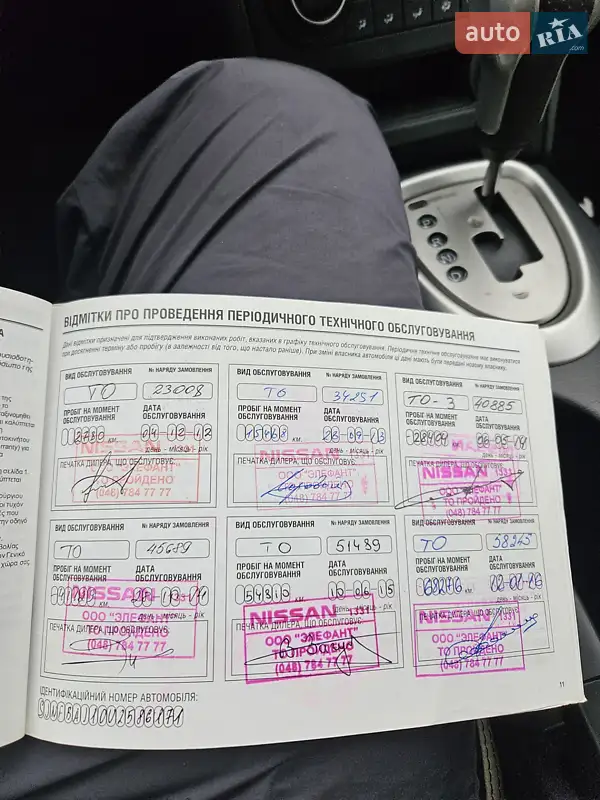 auto RIA.com
ВІДМІТКИ ПРО ПРОВЕДЕННЯ ПЕРІОДИЧНОГО ТЕХНІЧНОГО ОБСЛУГОВУВАННЯ
Дані відмітки призначені для підтвердження виконаних робіт, вказаних в графіку технічного обслуговування. Періодичне технічне обслуговування має виконуватися
при досягненні терміну або пробігу (в залежності від того, що настало раніше). При зміні власника автомобіля ці дані мають бути передані новому власнику.
ВИД ОБСЛУГОВУВАННЯ № НАРЯДУ ЗАМОВЛЕННЯ
ТО 23008
ПРОБІГ НА МОМЕНТ ОБСЛУГОВУВАННЯ
ДАТА ОБСЛУГОВУВАННЯ
2730 км. 04 12 13
день - місяць - рік
ПЕЧАТКА ДИЛЕРА, ЩО ОБСЛУГОВУЄ:
NISSAN
ООО "ЭЛЕФАНТ"
ТО ПРОЙДЕНО
(048) 784 77 77
ВИД ОБСЛУГОВУВАННЯ № НАРЯДУ ЗАМОВЛЕННЯ
ТО 34251
ПРОБІГ НА МОМЕНТ ОБСЛУГОВУВАННЯ
ДАТА ОБСЛУГОВУВАННЯ
15068 км. 26 09 13
день - місяць - рік
ПЕЧАТКА ДИЛЕРА, ЩО ОБСЛУГОВУЄ:
NISSAN
ООО "ЭЛЕФАНТ"
ТО ПРОЙДЕНО
(048) 784 77 77
ВИД ОБСЛУГОВУВАННЯ № НАРЯДУ ЗАМОВЛЕННЯ
ТО-3 40885
ПРОБІГ НА МОМЕНТ ОБСЛУГОВУВАННЯ
ДАТА ОБСЛУГОВУВАННЯ
28404 км. 06 05 14
день - місяць - рік
ПЕЧАТКА ДИЛЕРА, ЩО ОБСЛУГОВУЄ:
NISSAN 1331
ООО "ЭЛЕФАНТ"
ТО ПРОЙДЕНО
(048) 784 77 77
ВИД ОБСЛУГОВУВАННЯ № НАРЯДУ ЗАМОВЛЕННЯ
ТО 45689
ПРОБІГ НА МОМЕНТ ОБСЛУГОВУВАННЯ
ДАТА ОБСЛУГОВУВАННЯ
км.
день - місяць - рік
ПЕЧАТКА ДИЛЕРА, ЩО ОБСЛУГОВУЄ:
NISSAN
ООО "ЭЛЕФАНТ"
(048) 784 77 77
ВИД ОБСЛУГОВУВАННЯ № НАРЯДУ ЗАМОВЛЕННЯ
ТО 51439
ПРОБІГ НА МОМЕНТ ОБСЛУГОВУВАННЯ
ДАТА ОБСЛУГОВУВАННЯ
54310 км. 10 06 15
день - місяць - рік
ПЕЧАТКА ДИЛЕРА, ЩО ОБСЛУГОВУЄ:
NISSAN 1331
ООО "ЭЛЕФАНТ"
ТО ПРОЙДЕНО
(048) 784 77 77
ВИД ОБСЛУГОВУВАННЯ № НАРЯДУ ЗАМОВЛЕННЯ
ТО 58245
ПРОБІГ НА МОМЕНТ ОБСЛУГОВУВАННЯ
ДАТА ОБСЛУГОВУВАННЯ
км.
день - місяць - рік
ПЕЧАТКА ДИЛЕРА, ЩО ОБСЛУГОВУЄ:
NISSAN 1331
ООО "ЭЛЕФАНТ"
ТО ПРОЙДЕНО
(048) 784 77 77
ІДЕНТИФІКАЦІЙНИЙ НОМЕР АВТОМОБІЛЯ:
11